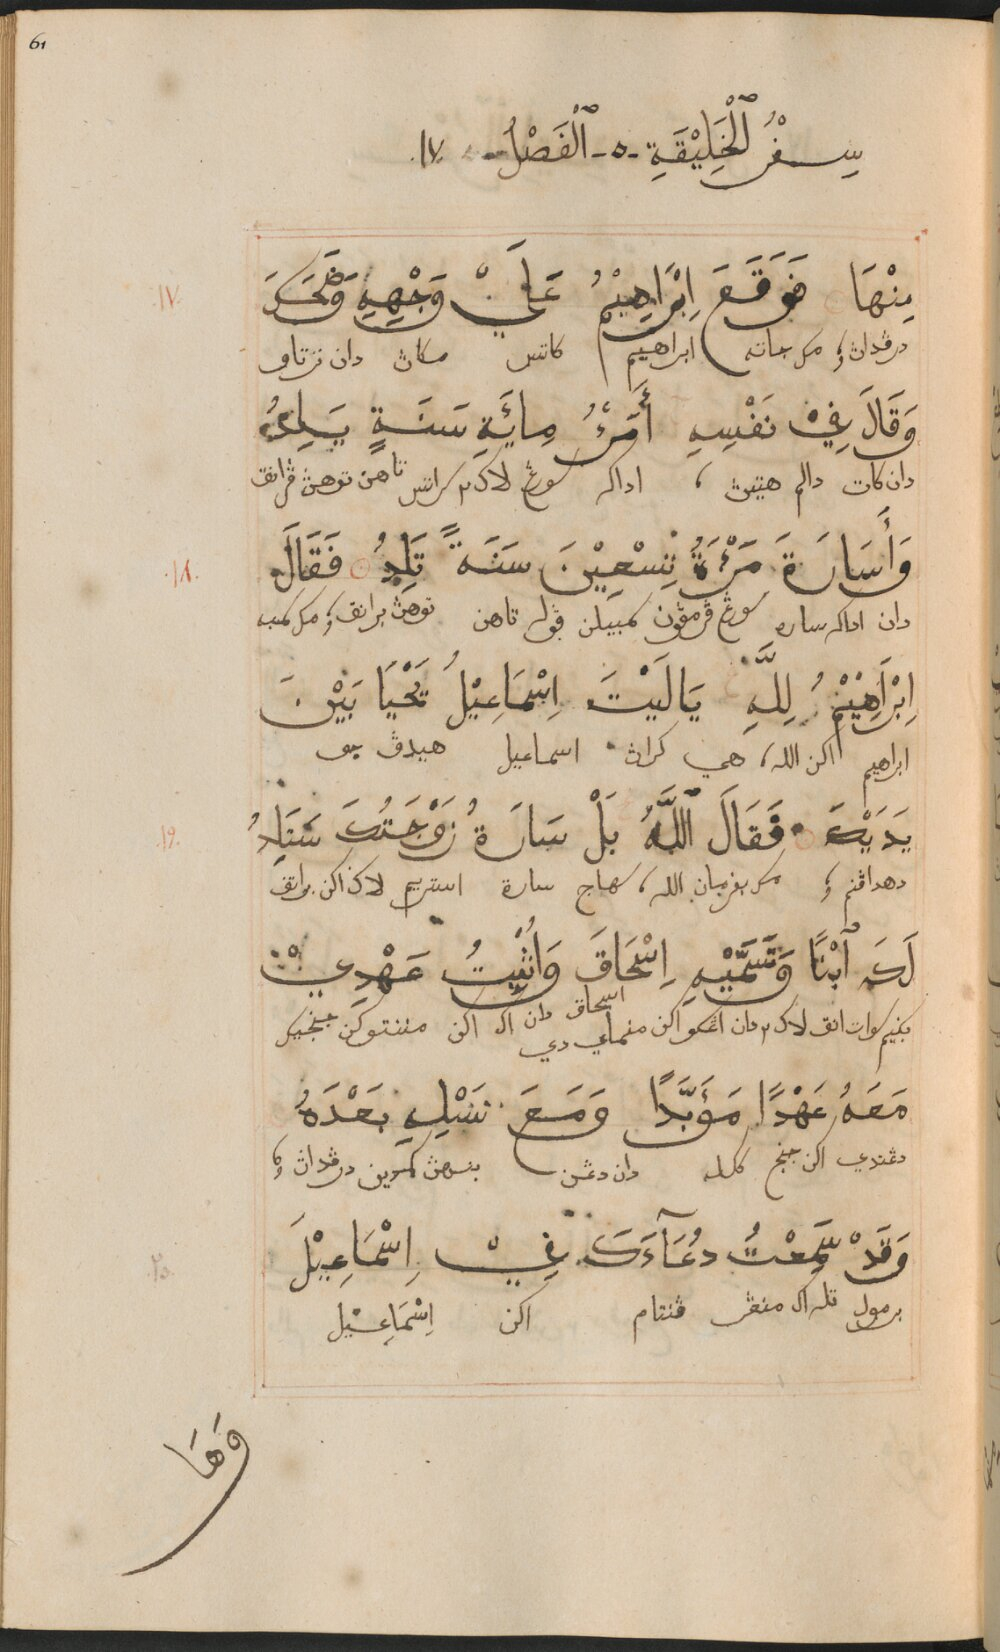 61
سِفْرُ ٱلْخَلِيْقَةِ - ٥ - ٱلْفَصْلُ - ١٧
١٧ مِنْهَا فَوَقَعَ اِبْرَاهِيْمُ عَلَيْ وَجْهِهِ وَضَحَكَ
درڤداڽ مك جاته ابراهيم كاتس مكاڽ دان ترتاو
وَقَالَ فِيْ نَفْسِهِ أَمَرْءُ مِائَةِ سَنَةٍ يَلِدُ
دان كات دالم هتيڽ ، اداكه سورڠ لاك٢ سراتس تاهن توهڽ ڤرانق
١٨ وَأَسَارَةَ مَرْءَةُ تِسْعِيْنَ سَنَةً تَلِدُ فَقَالَ
دان اداكه ساره سورڠ ڤرمڤون سمبيلن ڤوله تاهن توهڽ برانق مك كت
اِبْرَاهِيْمُ لِلّٰهِ يَالَيْتَ اِسْمَاعِيْلُ يَحْيَا بَيْنَ
ابراهيم اكن الله ، هي كراڽ اسماعيل هيدڤ جو
١٩ يَدَيْكَ فَقَالَ ٱللّٰهُ بَلْ سَارَةُ زَوْجَتُكَ سَتَلِدُ
دهداڤنم مك بفرمان الله ، سهاج سارة استريم لاك اكن برانق
لَكَ ٱبْنًا وَتَسَمَّيْهِ اِسْحَاقَ وَاُثْبِتُ عَهْدِيْ
بڬيم سوات انق لاك٢ دان اڠكو اكن منماي دي اسحاق دان اك اكن مننتوكن جنجيك
مَعَهُ عَهْدًا مَؤَبَّدًا وَمَعَ نَسْلِهِ بَعْدَهُ
دڠندي اكن جنج ككل دان دڠن بنهڽ كمدين درڤداڽ
٢٠ وَقَدْ سَمِعْتُ دُعَآءَكَ فِيْ اِسْمَاعِيْلَ
برمول تله اك منڠر ڤنتام اكن اِسْمَاعِيْل
وَهَا